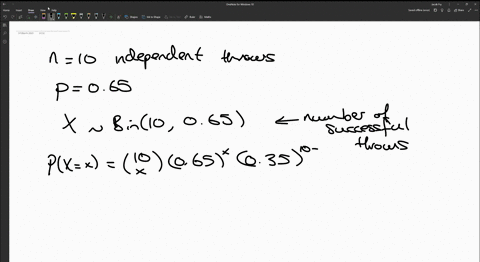 n = 10 ndependent throws
p = 0.65
X ~ Bin(10, 0.65) ← number of successful throws
P(X=x) = (10 x) (0.65)^x (0.35)^10-